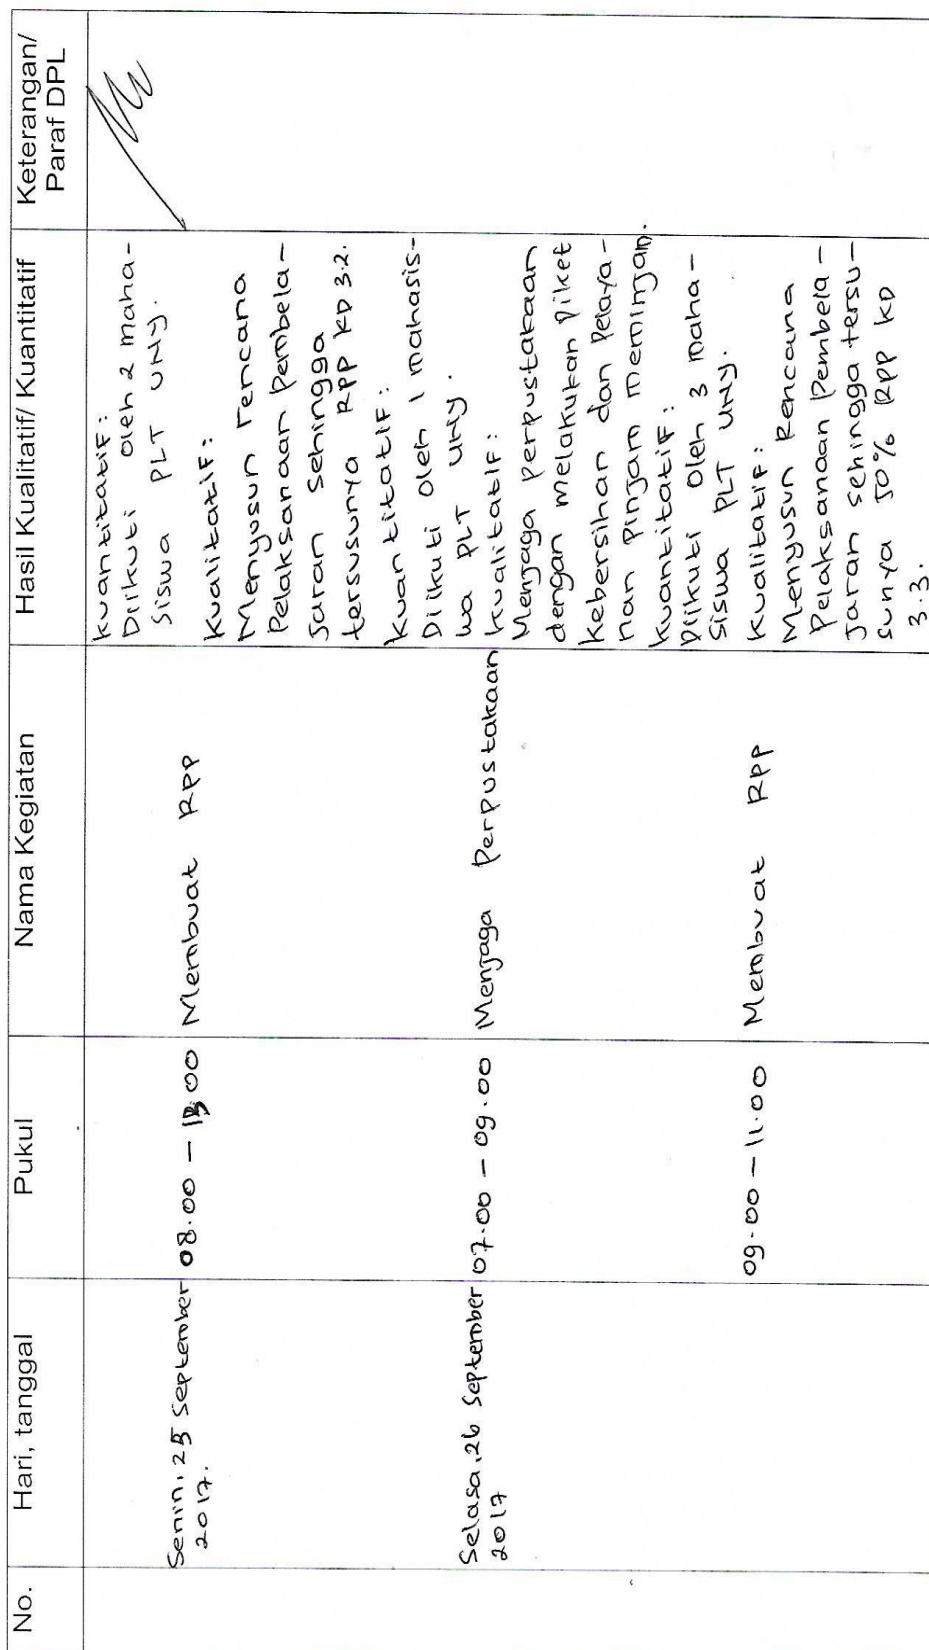 No.
Hari, tanggal
Pukul
Nama Kegiatan
Hasil Kualitatif/ Kuantitatif
Keterangan/
Paraf DPL
Kuantitatif:
Diikuti oleh 2 maha-
siswa PLT UNY.
Senin, 25 September
2017.
08.00 – 13.00
Membuat RPP
Kualitatif:
Menyusun rencana
Pelaksanaan Pembela-
jaran sehingga
tersusunya RPP KD 3.2.
Kuantitatif:
Diikuti oleh 1 mahasis-
wa PLT UNY.
Selasa, 26 September
2017
07.00 – 09.00
Menjaga Perpustakaan
Kualitatif:
Menjaga perpustakaan
dengan melakukan piket
kebersihan dan pelaya-
nan pinjam meminjam.
Kuantitatif:
Diikuti oleh 3 maha-
siswa PLT UNY.
09.00 – 11.00
Membuat RPP
Kualitatif:
Menyusun Rencana
Pelaksanaan Pembela-
jaran sehingga tersu-
sunya 50% RPP KD
3.3.